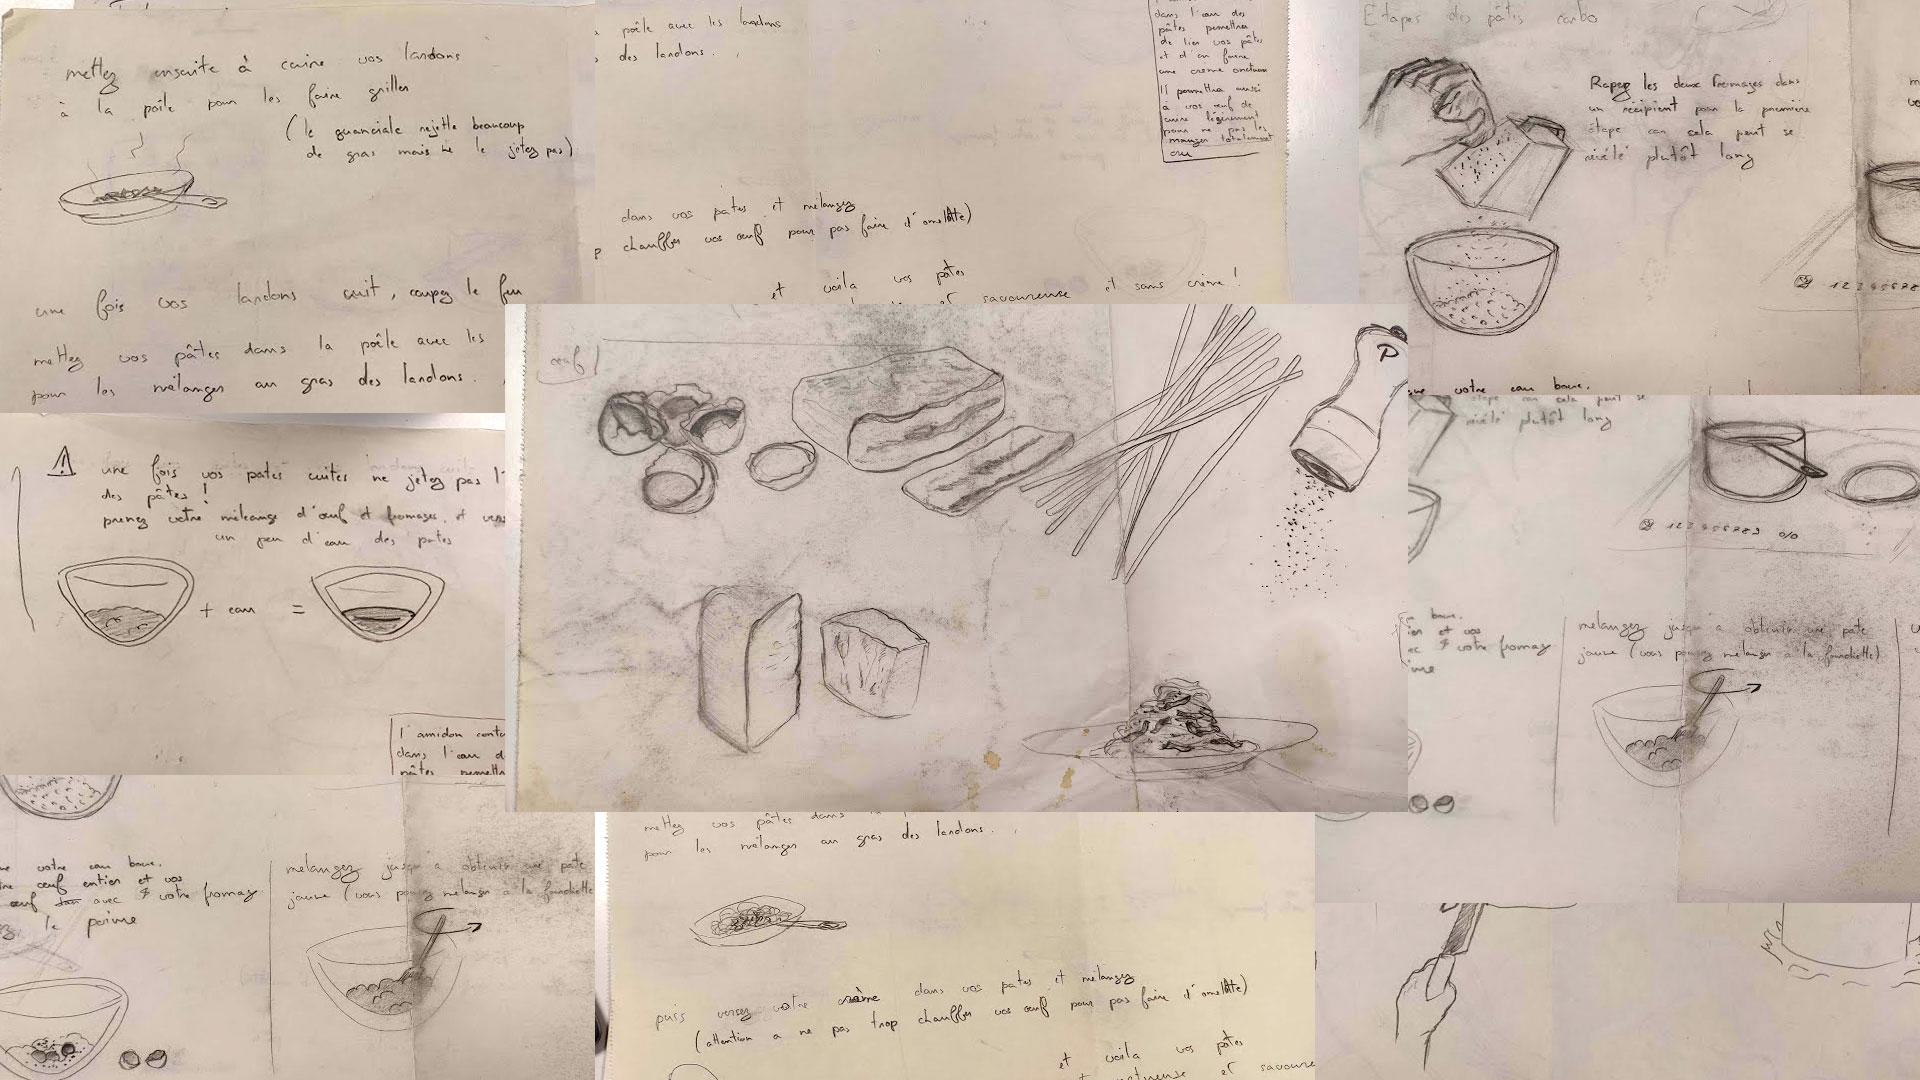 mettez ensuite à cuire vos landons
à la poêle pour les faire griller
(le guanciale rejette beaucoup
de gras mais ne le jetez pas)
une fois vos landons cuit, coupez le feu
mettez vos pâtes dans la poêle avec les
pour les mélanger au gras des landons.
poêle avec les landons
des landons.
dans l'eau des
pâtes permettra
de lier vos pâtes
et d'en faire
une creme onctueu
Il permettra aussi
à vos œuf de
cuire légèrement
pour ne pas les
manger totalement
cru
dans vos pates et mélangez
chauffer vos œuf pour pas faire d'omelette)
et voila vos pâtes
et savoureuse et sans crème !
Etapes des pâtes carbo
Rapez les deux fromages dans
un récipient pour la première
étape car cela peut se
révélé plutôt long
votre eau boue.
⚠ une fois vos pates cuites ne jetez pas l'
des pâtes !
prenez votre mélange d'œuf et fromages et vers
un peu d'eau des pates
+ eau =
l'amidon conte
dans l'eau d
pâtes permett
œufs
P
étape car cela peut se
révélé plutôt long
1 2 3 4 5 6 7 8 9 0/0
boue.
et vos
votre fromag
melangez jusqu'a obtenir une pate
jaune (vous pouvez mélanger a la fourchette)
votre eau boue.
œuf entier et vos
œuf avec votre fromag
le poivre
melangez jusqu'a obtenir une pate
jaune (vous pouvez mélanger a la fourchette
mettez vos pâtes dans la
pour les mélanger au gras des landons.
puis versez votre crème dans vos pates et mélangez
(attention a ne pas trop chauffer vos œuf pour pas faire d'omelette)
et voila vos pâtes
et savoure